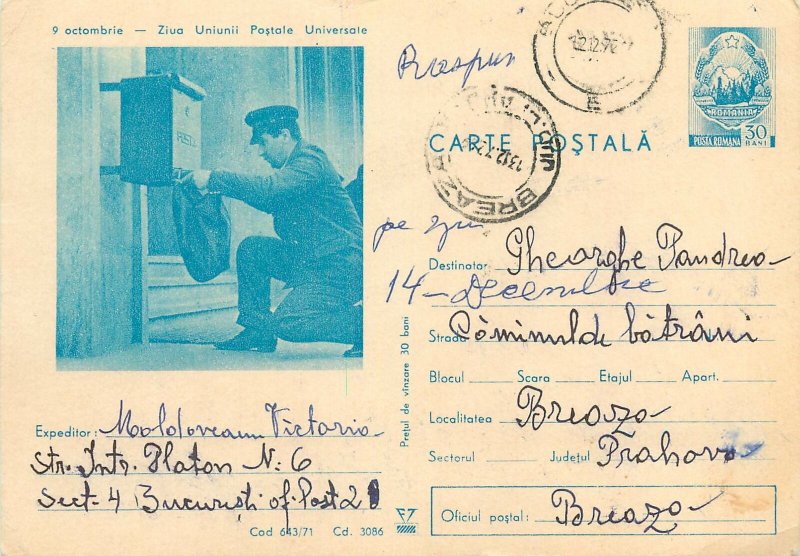 9 octombrie — Ziua Uniunii Poștale Universale
POSTA
Răspuns
12.12.72
CARTE POȘTALĂ
ROMANIA
POSTA ROMANA 30 BANI
13.12.72
BREAZA
pe ziu
Destinatar Gheorghe Pandrea
14 – Decembrie
Strada Căminul de bătrâni
Blocul Scara Etajul Apart.
Localitatea Breaza
Sectorul Județul Prahova
Oficiul poștal: Breaza
Prețul de vînzare 30 bani
Expeditor: Moldoveanu Victoria
Str. Intr. Platon N: 6
Sect- 4 București of. Post 20
Cod 643/71 Cd. 3086